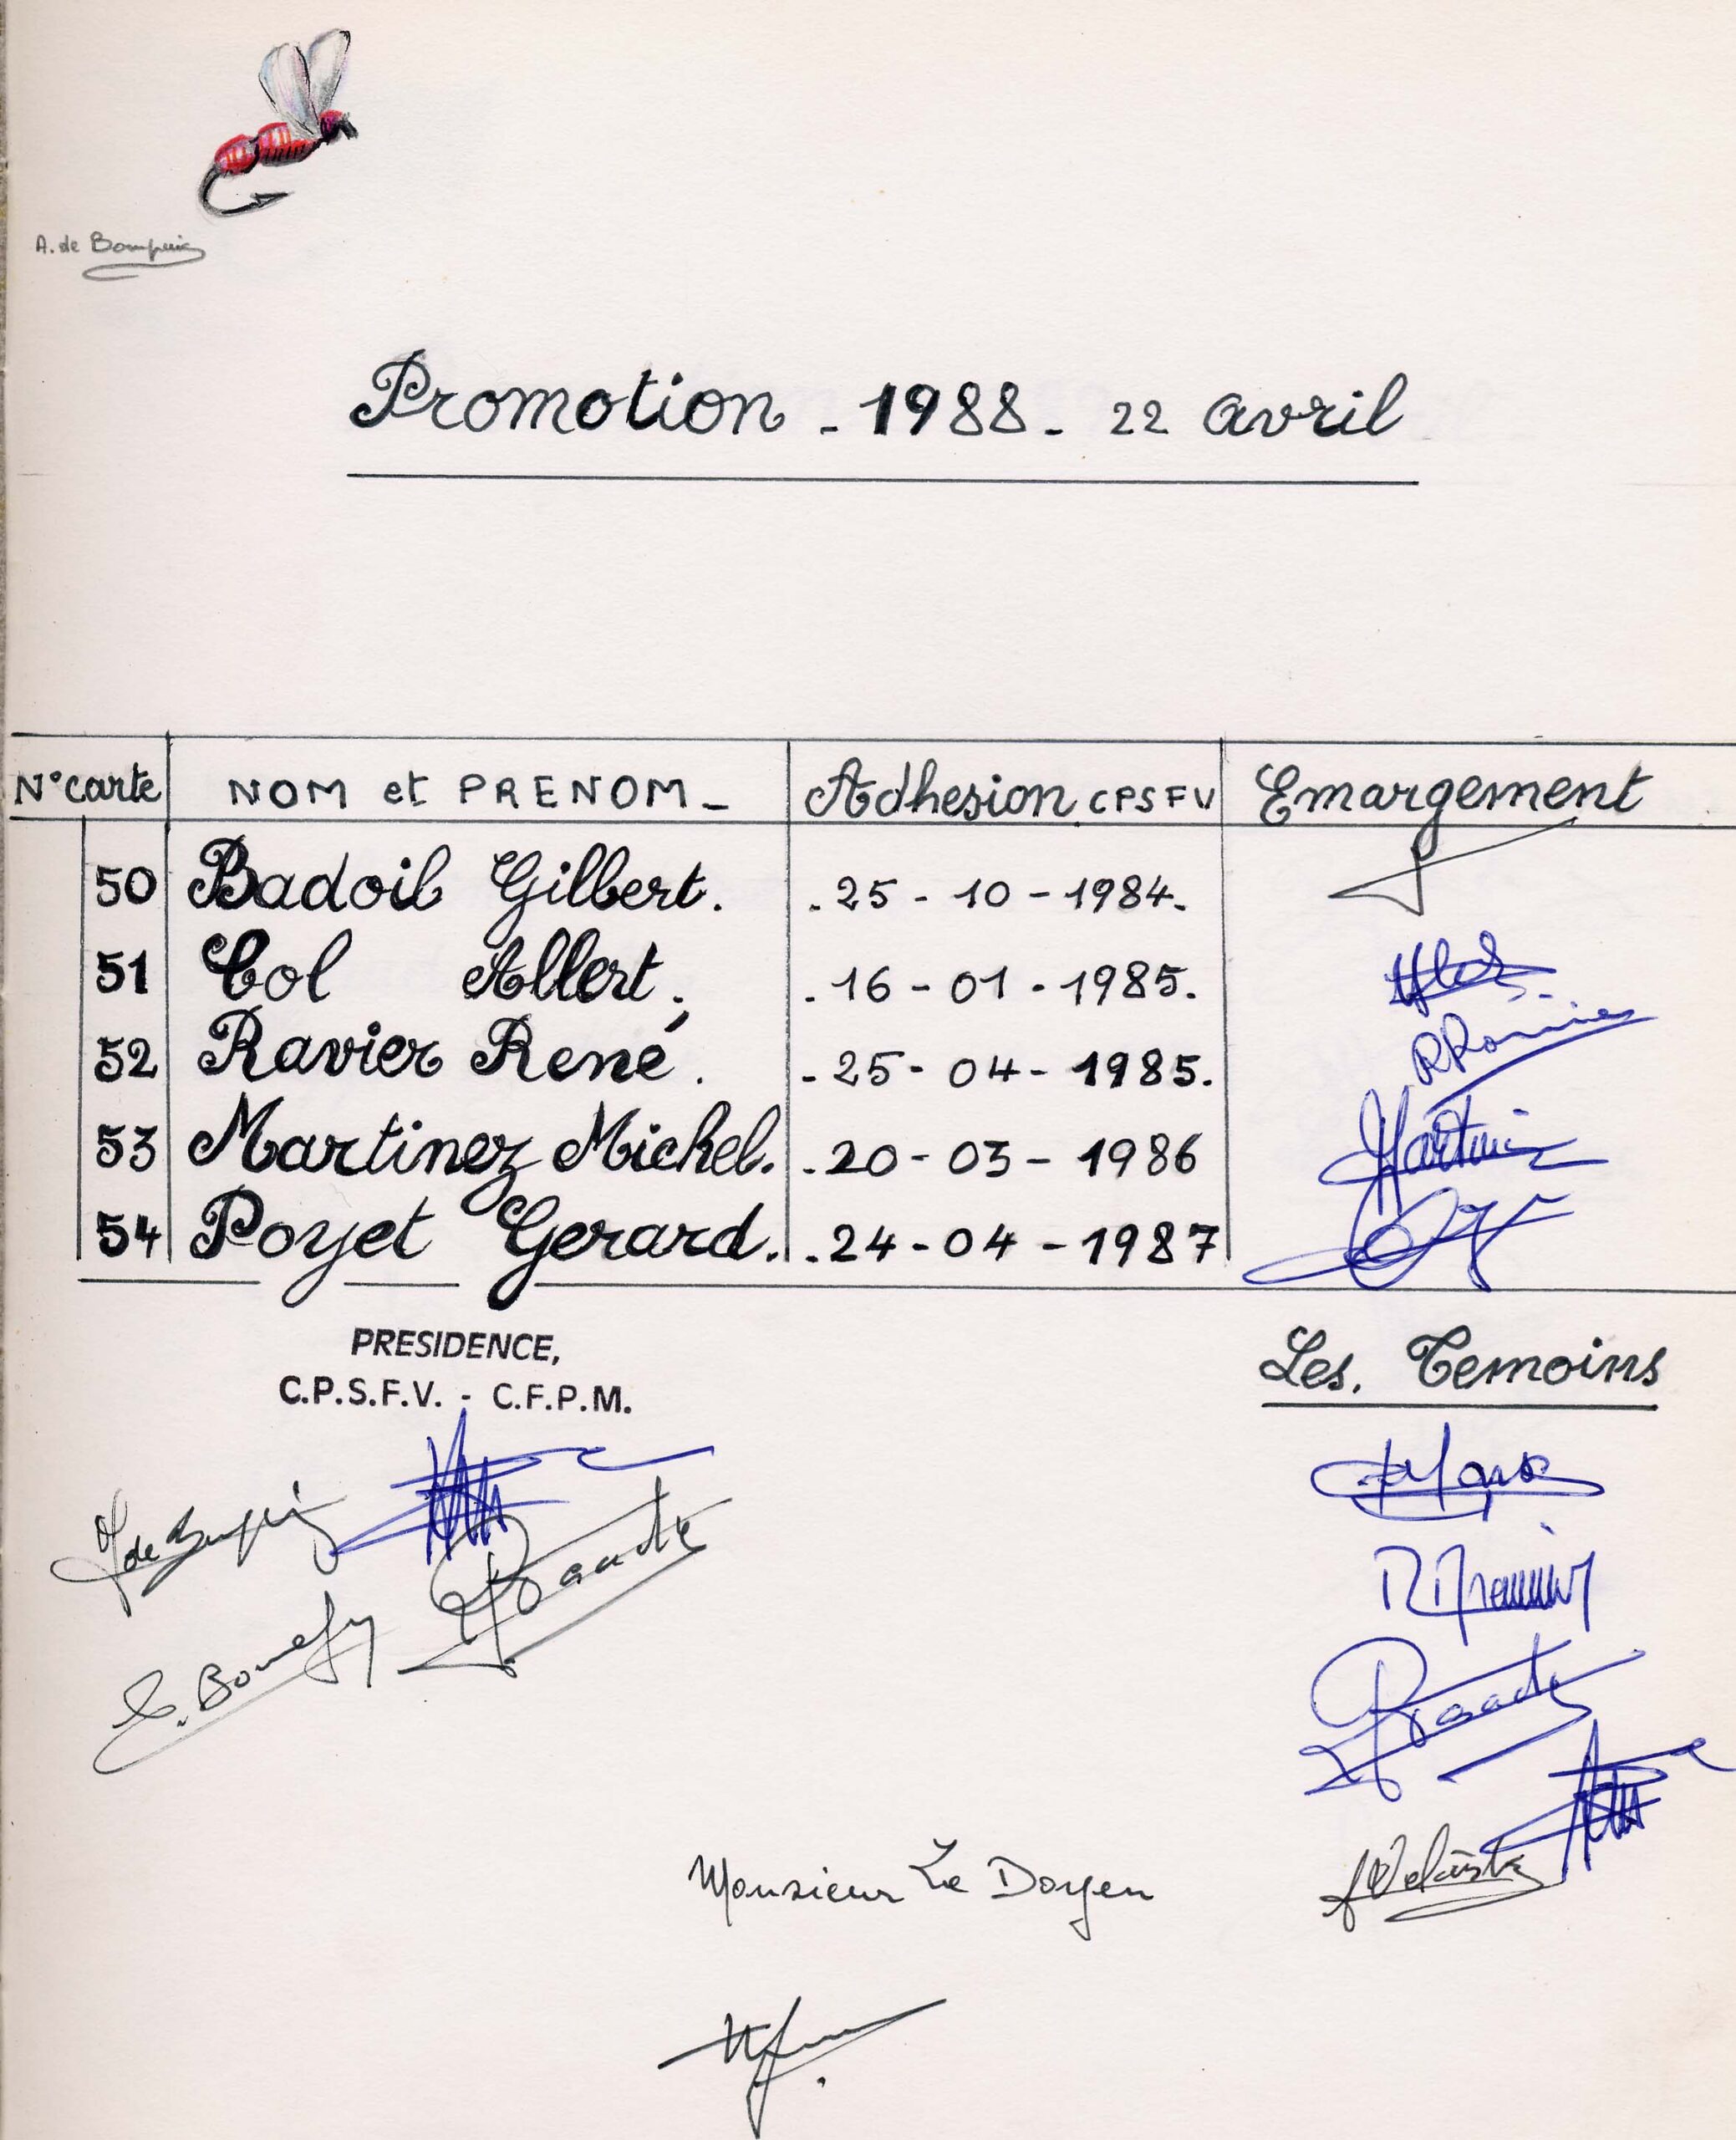 A. de Bompuis
Promotion - 1988 - 22 avril
N° carte NOM et PRENOM - Adhesion CPSFV Emargement
50 Badoil Gilbert. . 25 - 10 - 1984.
51 Col Albert. . 16 - 01 - 1985.
52 Ravier René. - 25 - 04 - 1985.
53 Martinez Michel. . 20 - 03 - 1986
54 Poyet Gerard. . 24 - 04 - 1987
PRESIDENCE,
C.P.S.F.V. - C.F.P.M.
Les. Temoins
Monsieur Le Doyen